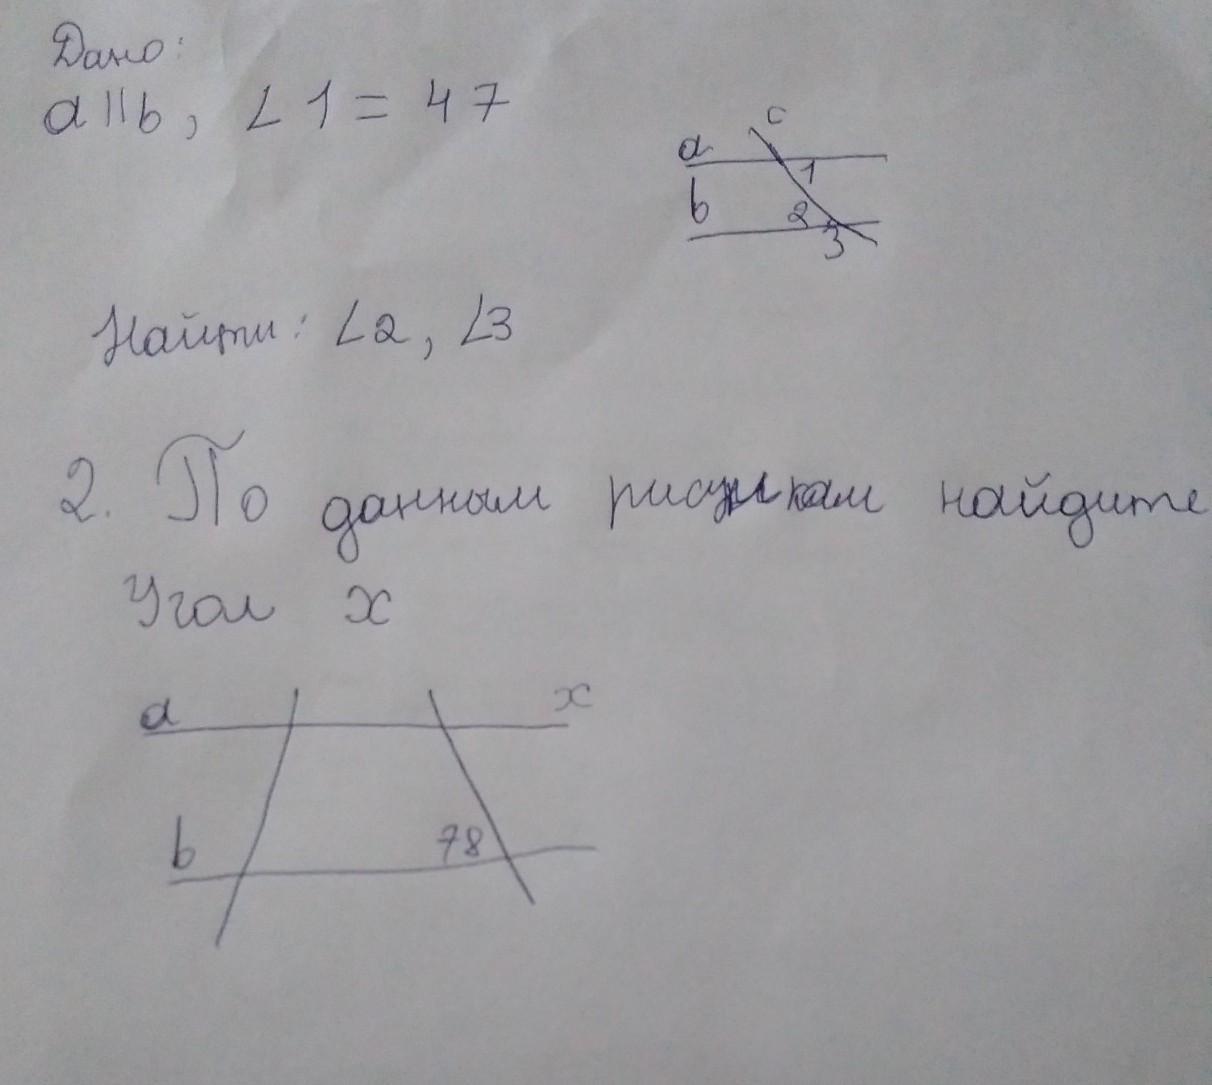 Дано:
a||b, ∠1 = 47
c
a
1
b
2
3
Найти: ∠2, ∠3
2. По данным рисункам найдите
Угол x
a
x
b
78